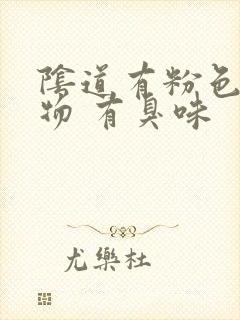 陰道有粉色
物 有臭味
尤樂杜